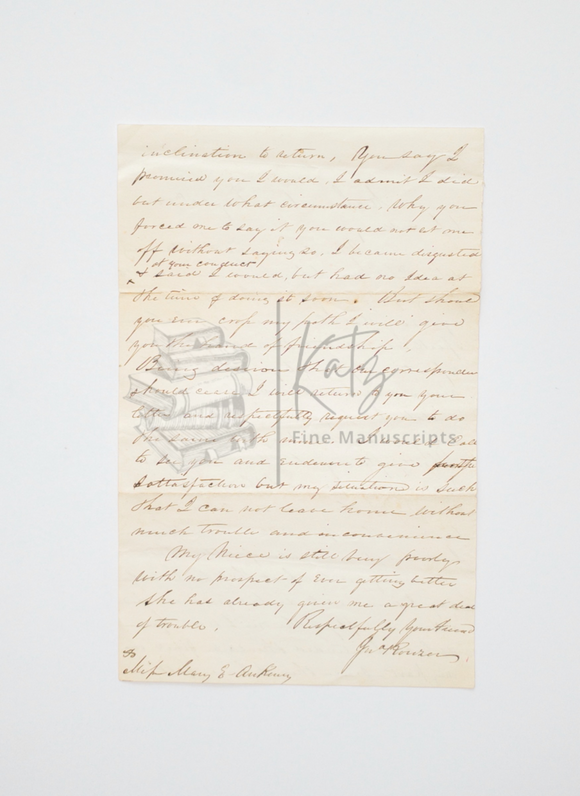 inclination to return, You say I
promised you I would, I admit I did
but under what circumstance. Why you
forced me to say it you would not let me
off without saying so, I became disgusted
at your conduct
& said I would, but had no Idea at
the time of doing it soon. But should
you ever my path I will give
you the hand of friendship.
Being desirous that our correspondence
should cease I will return to you your
letters and respectfully request you to do
the same with mine
to see you and Endeavor to give
satisfaction but my situation is such
that I can not leave home without
much trouble and inconvenience
My Niece is still very poorly
with no prospect of Ever getting better
She has already given me a great deal
of trouble. Respectfully Your friend
Jno
To
Miss Mary E. Ankeny
Katz
Fine Manuscripts